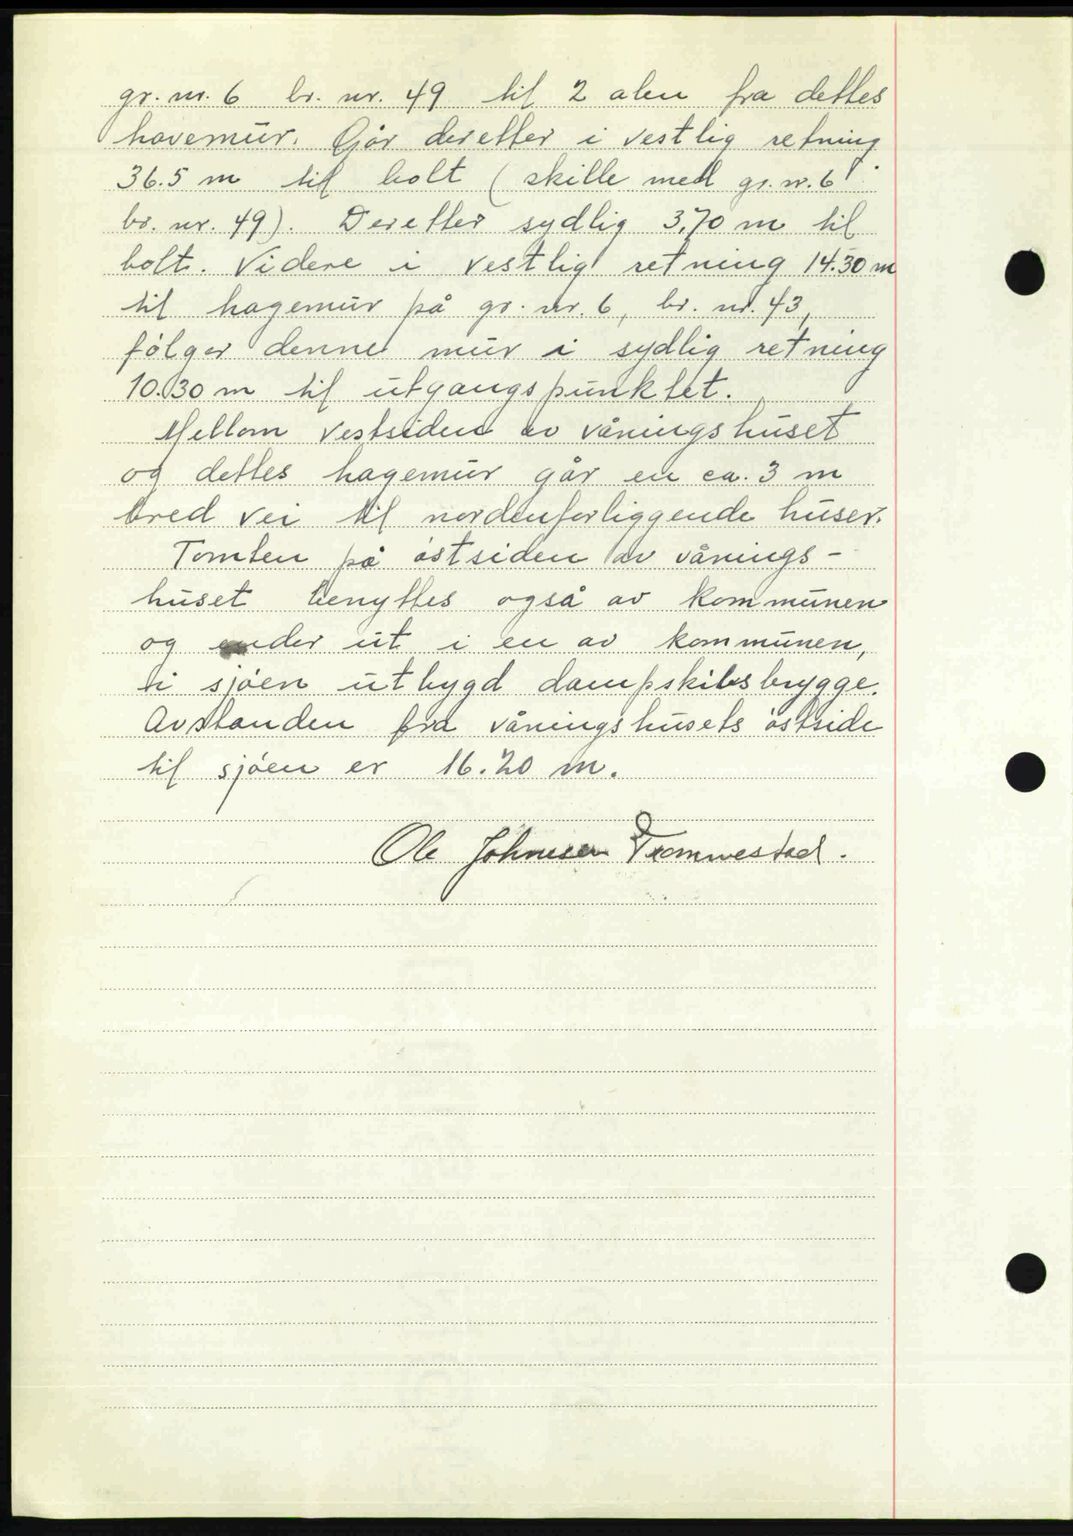 gr. nr. 6 br. nr. 49 til 2 alen fra dettes
havemur. Går deretter i vestlig retning
36.5 m til bolt (skille med gr. nr. 6
br. nr. 49). Deretter sydlig 3,70 m til
bolt. Videre i vestlig retning 14.30 m
til hagemur på gr. nr. 6, br. nr. 43,
følger denne mur i sydlig retning
10.30 m til utgangspunktet.
Mellom vestsiden av våningshuset
og dettes hagemur går en ca. 3 m
bred vei til nordenforliggende huser.
Tomten på østsiden av vånings-
huset benyttes også av kommunen
og ender ut i en av kommunen,
i sjøen utbygd dampskibsbrygge.
Avstanden fra våningshusets østside
til sjøen er 16.20 m.
Ole Johnsen